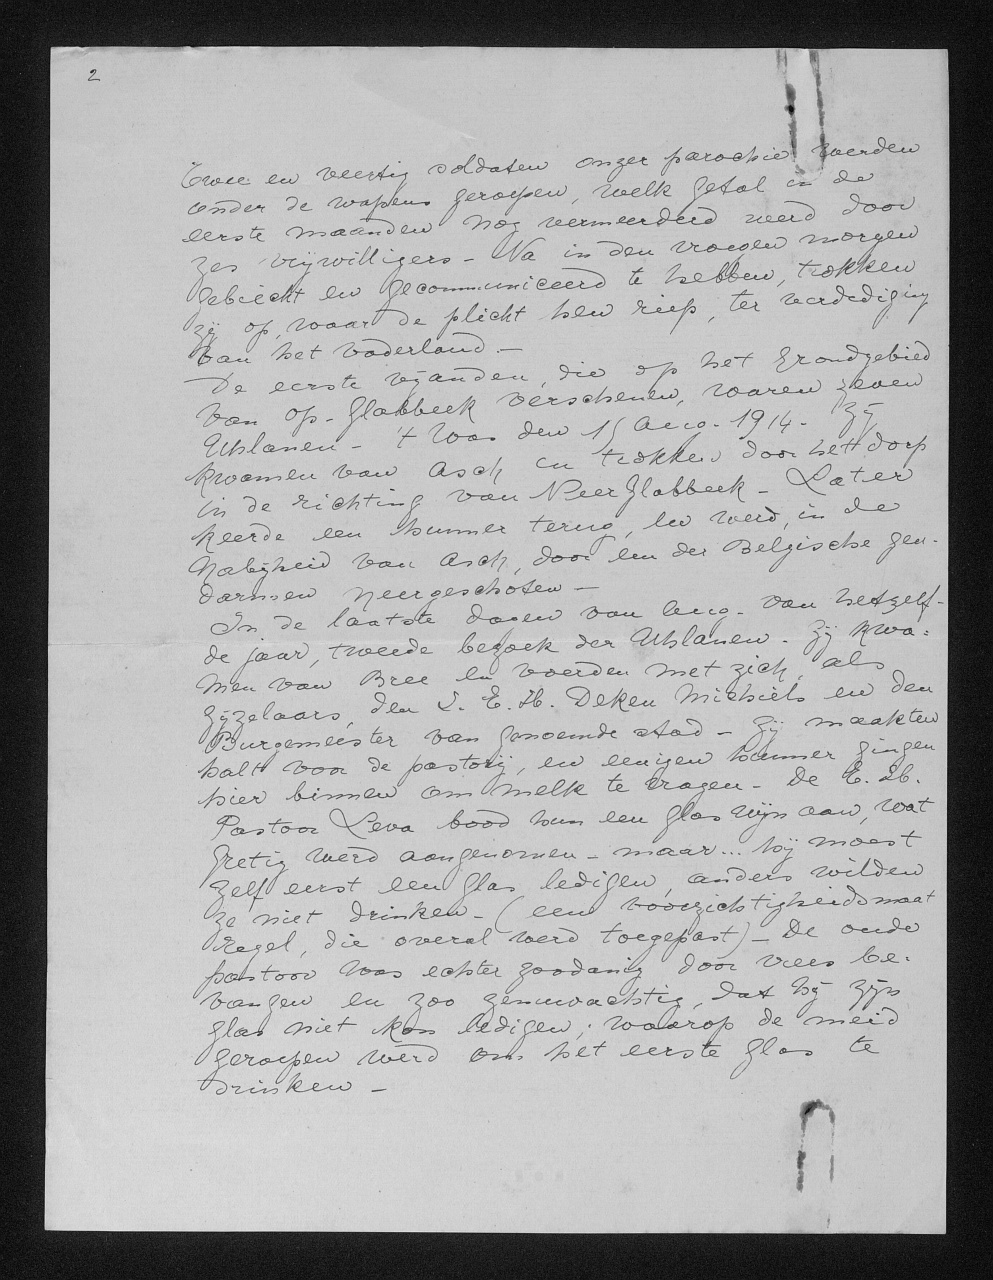 2
Twee en veertig soldaten onzer parochie werden
onder de wapens geroepen, welk getal in de
eerste maanden nog vermeerderd werd door
zes vrijwilligers - Na in den vroegen morgen
gebiecht en gecommuniceerd te hebben, trokken
zij op, waar de plicht hen riep, ter verdediging
van het vaderland. -
De eerste vijanden, die op het grondgebied
van op-Glabbeek verschenen, waren zeven
Uhlanen - 't Was den 15 Aug. 1914. Zij
kwamen van Asch en trokken door het dorp
in de richting van Neerglabbeek - Later
keerde een hunner terug, en werd, in de
Nabijheid van Asch, door een der Belgische gen-
darmen neergeschoten -
In de laatste dagen van Aug. van hetzelf-
de jaar, tweede bezoek der Uhlanen. Zij kwa-
men van Bree en voerden met zich, als
gijzelaars, den Z. E. H. Deken Michiels en den
Burgemeester van genoemde stad - Zij maakten
halt voor de pastorij, en eenigen hunner gingen
hier binnen om melk te vragen - De E. H.
Pastoor Leva bood hun een glas wijn aan, wat
gretig werd aangenomen - maar... hij moest
zelf eerst een glas ledigen, anders wilden
ze niet drinken - (een voorzichtigheidsmaat
regel, die overal werd toegepast) - De oude
pastoor was echter zoodanig door vrees be-
vangen en zoo zenuwachtig, dat hij zijn
glas niet kon ledigen; waarop de meid
geroepen werd om het eerste glas te
drinken -